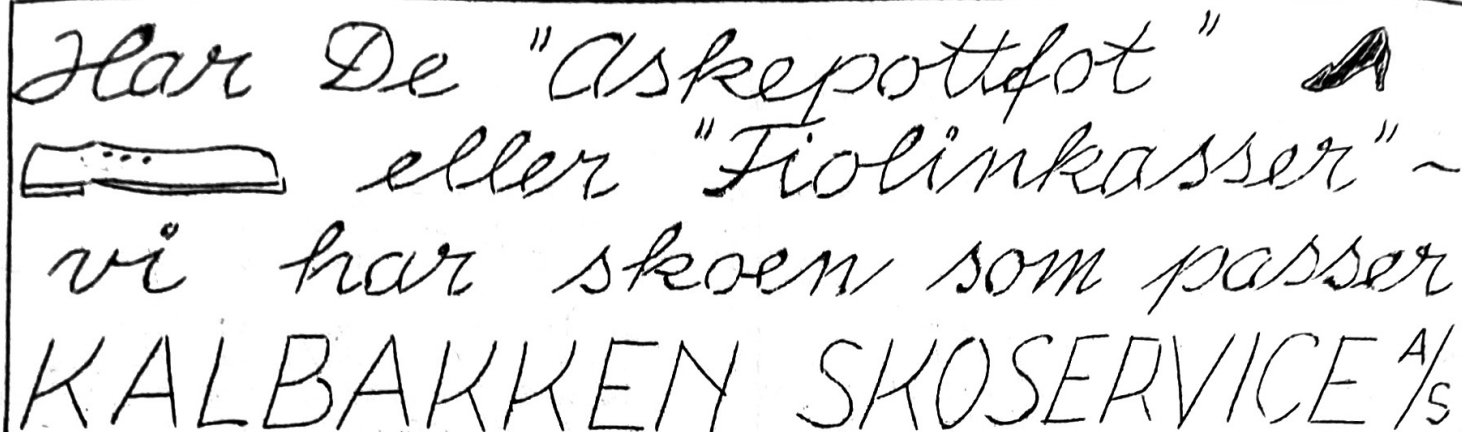 Har De "Askepottfot"
eller "Fiolinkasser" ~
vi har skoen som passer
KALBAKKEN SKOSERVICE A/S